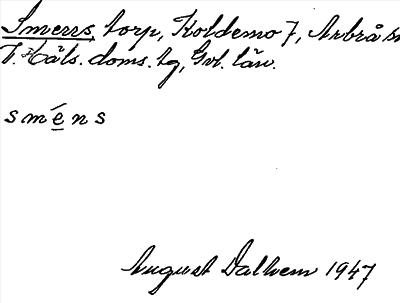 Smerrs, torp, Koldemo 7, Arbrå sn
V. Häls. doms. tg, Gvl. län.
smé̲ns
August Dalhem 1947